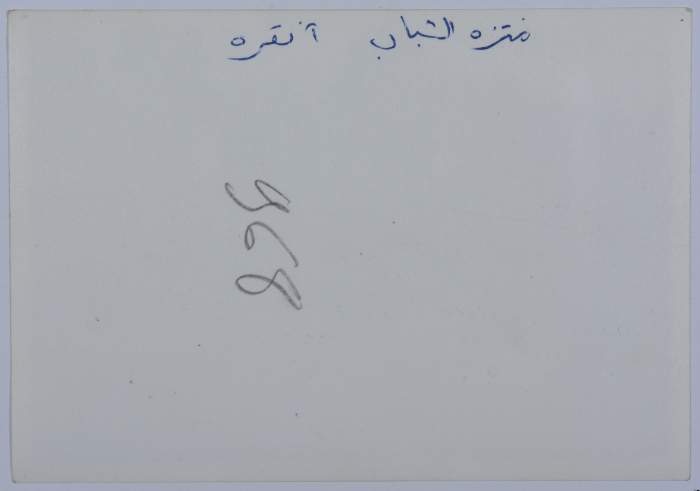 منتزه الشباب آنقره
868